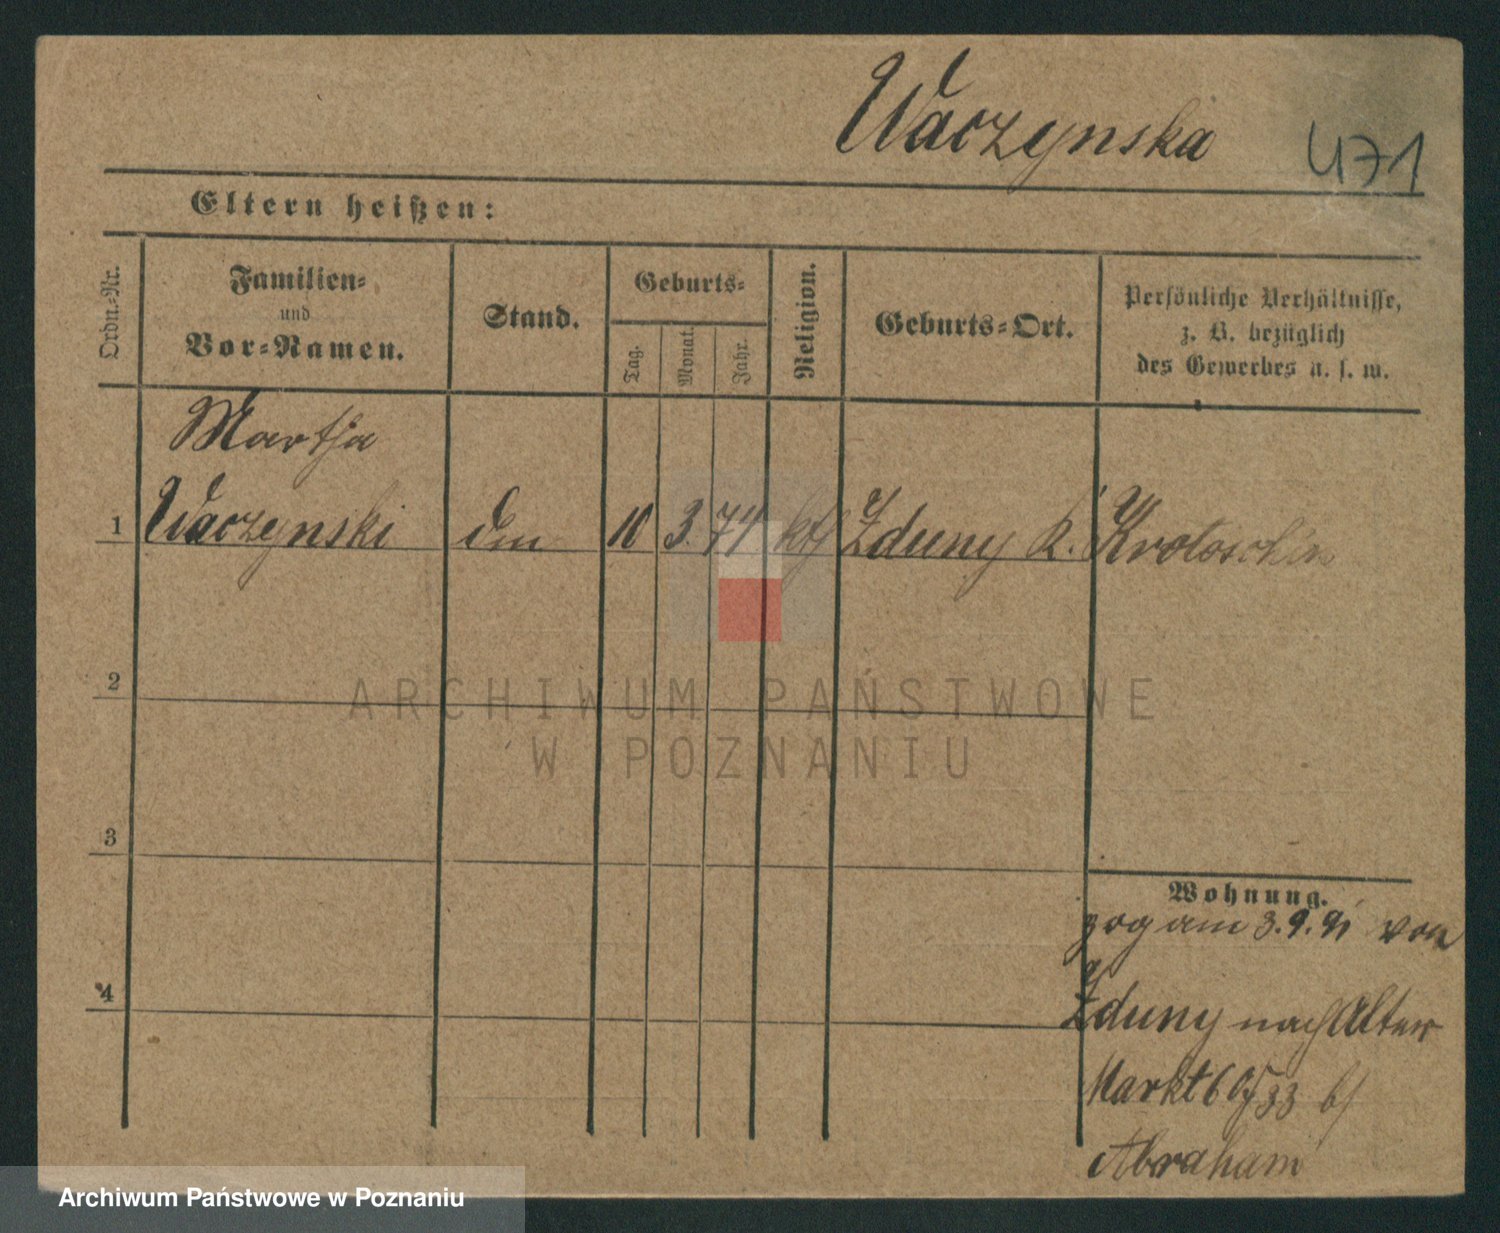 Waczynska
471
Eltern heißen:
Ordn.-Nr.
Familien-
und
Vor-Namen.
Stand.
Geburts-
Tag.
Monat.
Jahr.
Religion.
Geburts-Ort.
Persönliche Verhältnisse,
z. B. bezüglich
des Gewerbes u. s. w.
Martha
1 Waczynski 10 3. 74 kth Zduny K. Krotoschin
2
3
4
Wohnung.
zog am 3.9.91 von
Zduny nach Alter
Markt 60/33 b/
Abraham
ARCHIWUM PAŃSTWOWE
W POZNANIU
Archiwum Państwowe w Poznaniu